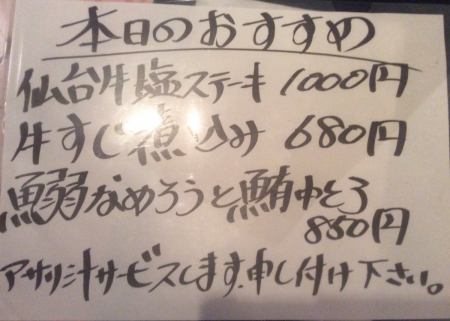 本日のおすすめ
仙台牛塩ステーキ 1000円
牛すじ煮込み 680円
鰯なめろうと鮪中とろ
850円
アサリ汁サービスします、申し付け下さい。